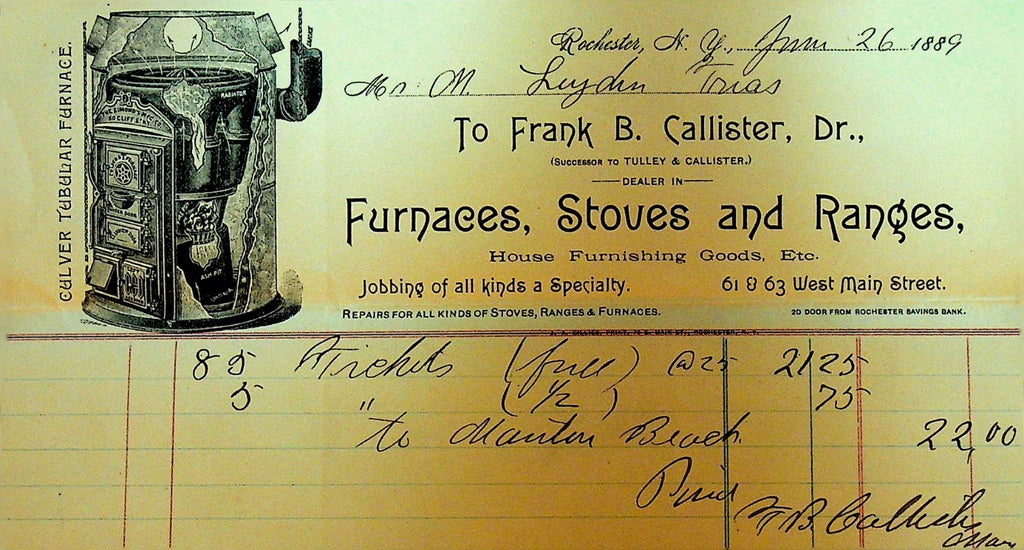 CULVER TUBULAR FURNACE.
RADIATOR
ASH PIT
Rochester, N. Y., June 26 1889
Mr. M. Leyden Treas
To Frank B. Callister, Dr.,
(Successor to TULLEY & CALLISTER.)
DEALER IN
Furnaces, Stoves and Ranges,
House Furnishing Goods, Etc.
Jobbing of all kinds a Specialty. 61 & 63 West Main Street.
REPAIRS FOR ALL KINDS OF STOVES, RANGES & FURNACES. 2D DOOR FROM ROCHESTER SAVINGS BANK.
85 Tickets (full) @25 2125
5 " (1/2) 75
to Manitou Beach 22,00
Paid
F. B. Callister